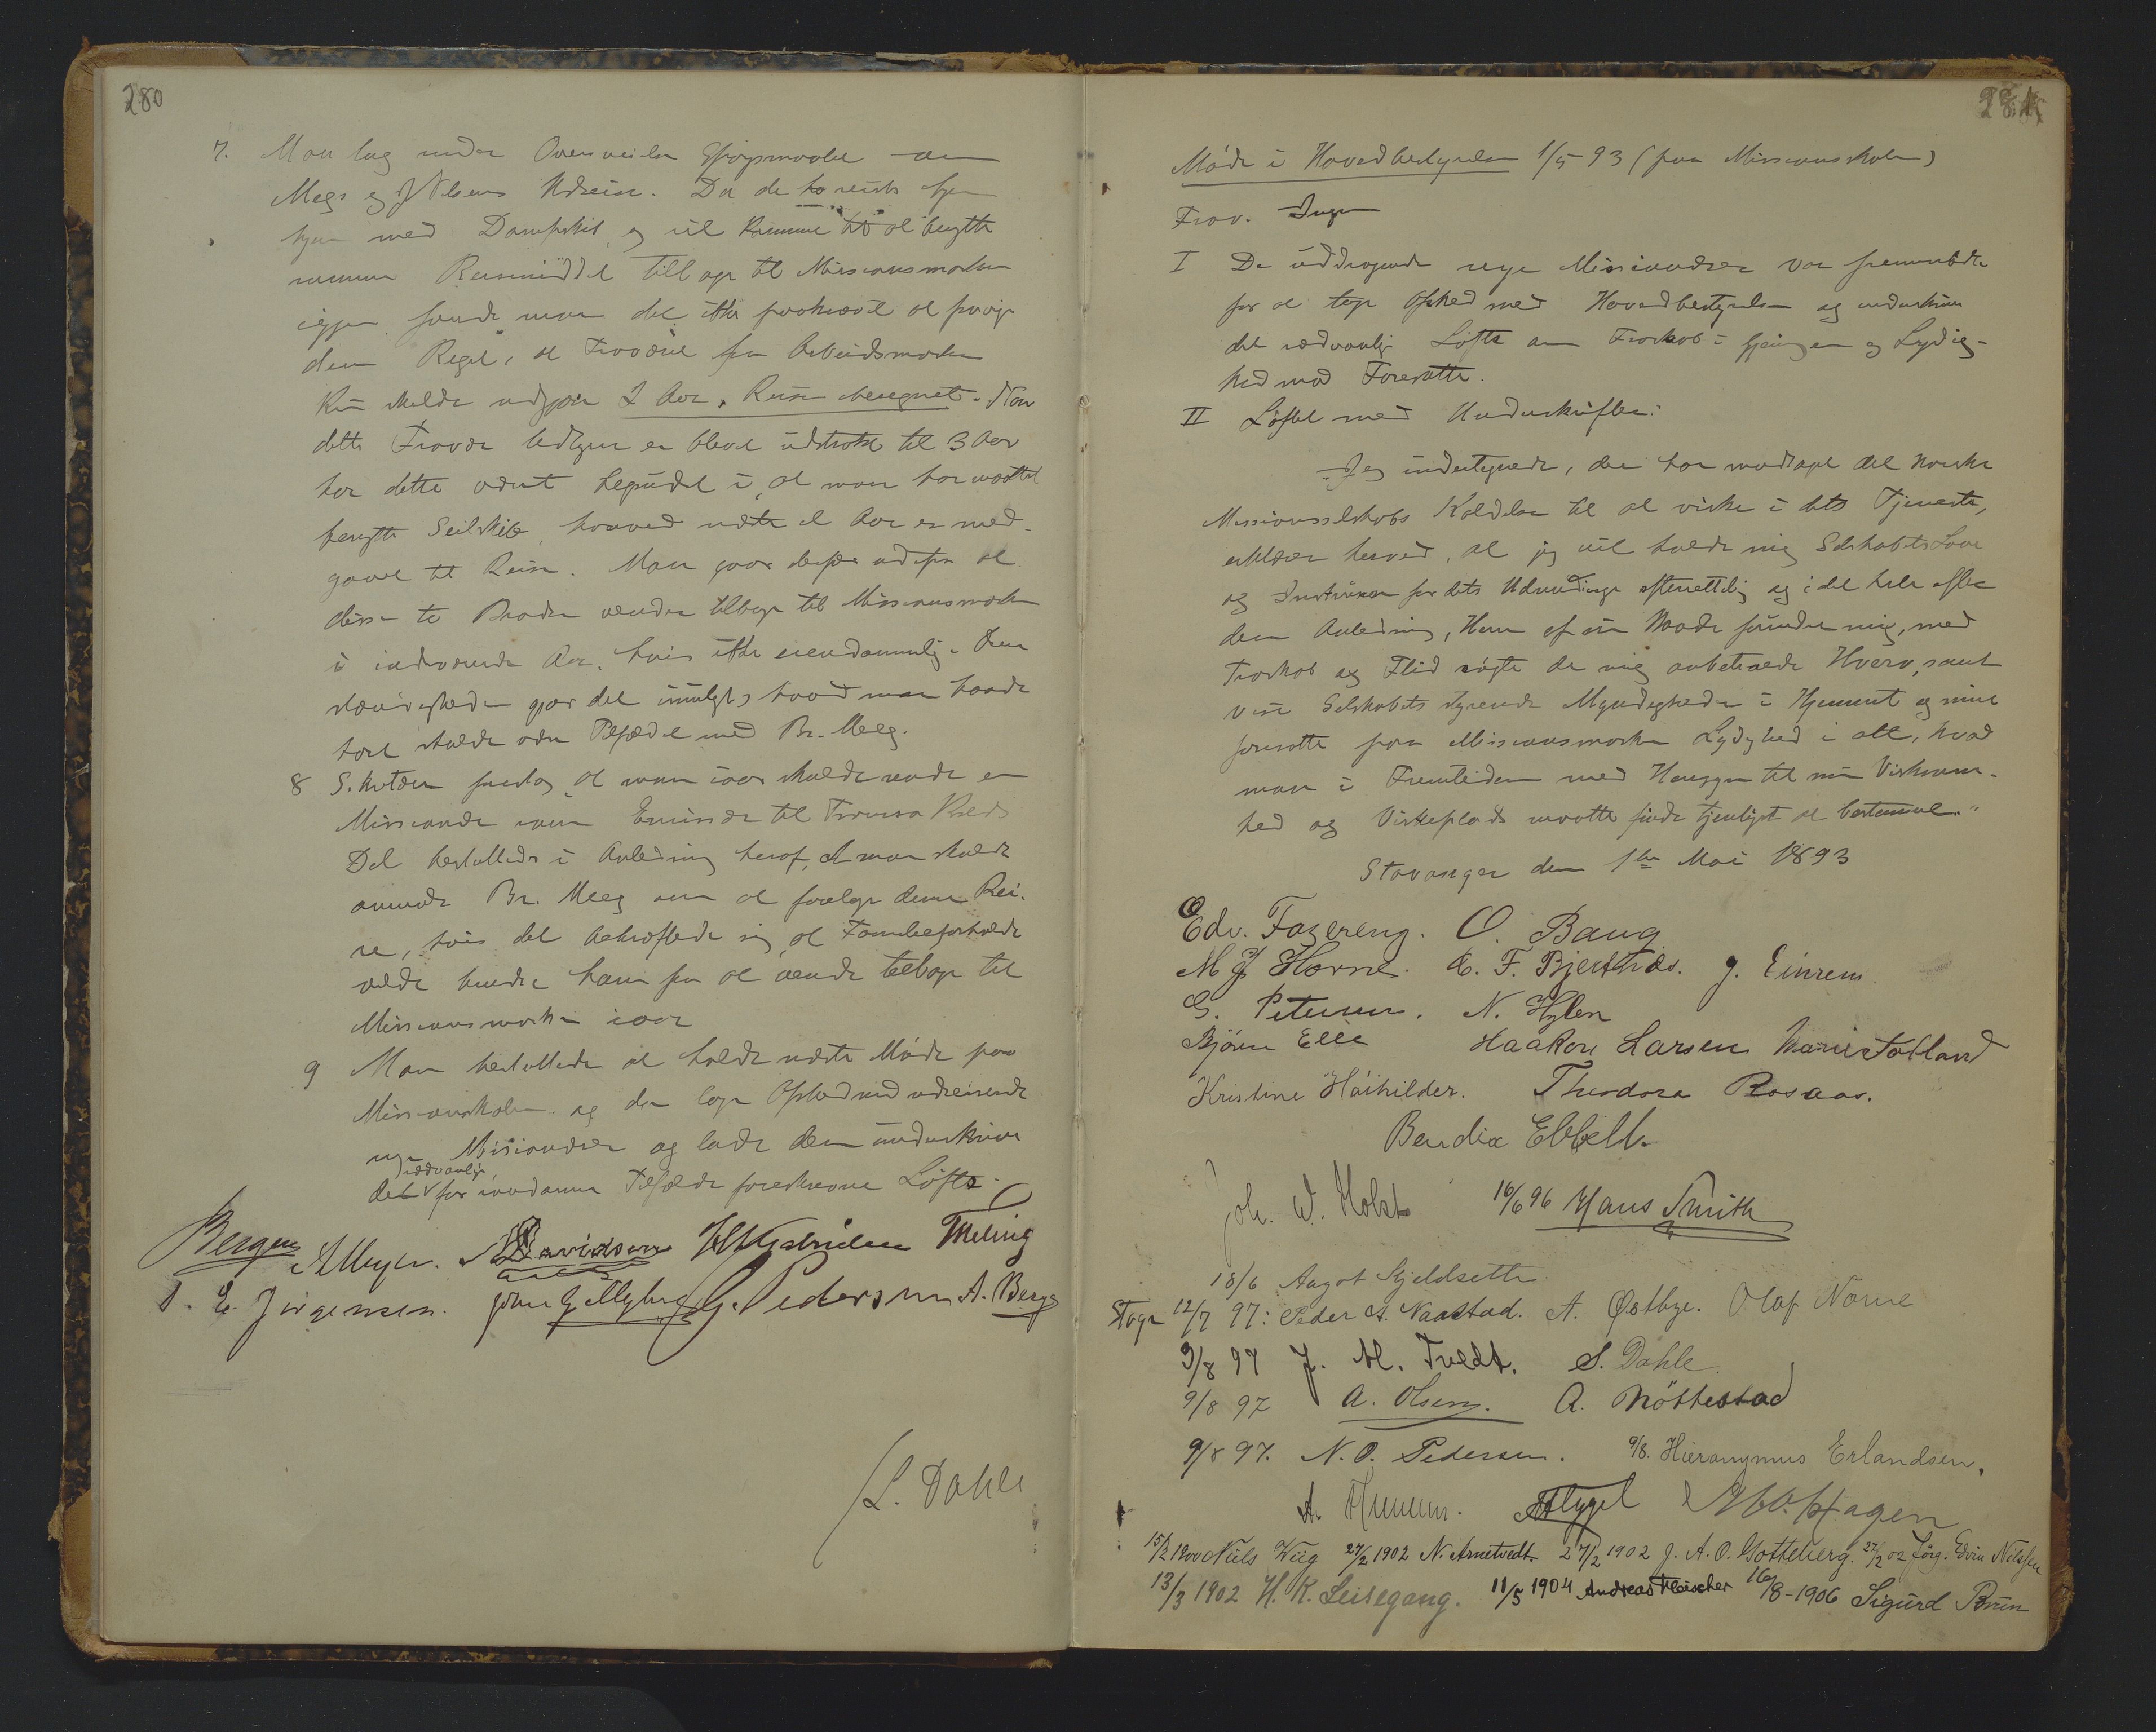 280
7. Man tog under Overveielse Spörgsmaalet om
Megs og J Nilsens Udreise. Da de to reiste hjem
hjem med Dampskib og vil komme til at benytte
samme Reisemiddel tilbage til Missionsmarken
igjen fandt man det ikke paakrævet at fravige
den Regel, at Fravær fra Arbeidsmarken
kun skulde udgjøre 2 Aar, Reisen iberegnet. Naar
dette Fravær tidligere er blevet udstrakt til 3 Aar
har dette været begrundet i, at man har maattet
benytte Seilskib, hvorved næsten et Aar er med-
gaaet til Reisen. Man gaar derfor ud fra at
disse to Brødre vender tilbage til Missionsmarken
i indværende Aar, hvis ikke eiendommelige Om
stændigheder gjør det umuligt, hvad man havde
hørt skulde være Tilfældet med Br. Meeg.
8 S. foreslog at man iaar skulde sende en
Missionær som Emissær til Tromsø Kreds
Det besluttedes i Anledning heraf, at man skulde
anmode Br. Meeg om at foretage denne Rei-
se, hvis det bekræftede sig, at Familieforholde
vilde hindre ham fra at vende tilbage til
Missionsmarken iaar
9 Man besluttede at holde næste Møde paa
Missionsskolen og der tage Afsked med udreisende
nye Missionærer og lade dem underskrive
sædvanlige
det for saadanne Tilfælde foreskrevne Löfte.
Bergen A Meyer. Davidsen Meling
S. E. Jörgensen. G. Pedersen A. Berge
L. Dahle
281
Möde i Hovedbestyrelsen 1/5 93 (paa Missionsskolen)
Frav. Ingen
I De uddragende nye Missionærer var fremmødte
for at tage Afsked med Hovedbestyrelsen og underskrive
det sædvanlige Löfte om Troskab i Gjerningen og Lydig-
hed mod Foresatte.
II Löftet med Underskrifter:
"Jeg undertegnede, der har modtaget det norske
Missionsselskabs Kaldelse til at virke i dets Tjeneste,
erklærer herved, at jeg vil holde mig Selskabets Love
og Instruxer for dets Udsendinge efterrettelig og i det hele efter
den Anledning, Herren af sin Naade forunder mig, med
Troskab og Flid røgte de mig anbetroede Hverv, samt
vise Selskabets styrende Myndigheder i Hjemmet og mine
foresatte paa Missionsmarken Lydighed i alt, hvad
man i Fremtiden med Hensyn til min Virksom-
hed og Virkeplads maatte finde tjenligst at bestemme."
Stavanger den 1ste Mai 1893
Edv. Fagereng. O. Baug
M J Horne. E. F. Bjertnæs. J. Einrem.
G. Petersen. N. Hylen
Björn Elle Haakon Larsen Marie Føllend
Kristine Håihilder. Theodora Rosaas.
Bendix Ebbell.
Joh. W. Holst 16/6 96 Hans Smith
18/6 Aagot Kjeldseth
Stavgr 12/7 97: Peder A. Naastad. A. Østbye. Olaf Norne
9/8 97 J. M. Tvedt. S. Dahle.
9/8 97 A. Olsen. A. Nöttestad
9/8 97. N. O. Pedersen. 9/8. Hieranymus Erlandsen.
A. Flygel M. O. Hagen
15/2 1900 Niels Wiig 27/2 1902 N. Arnetvedt 27/2 1902 J. A. O. Gotteberg. 27/2 02 Jörg. Edvin Nilssen
13/3 1902 H. K. Leisegang. 11/5 1904 Andreas Fleischer 16/8-1906 Sigurd Bruun